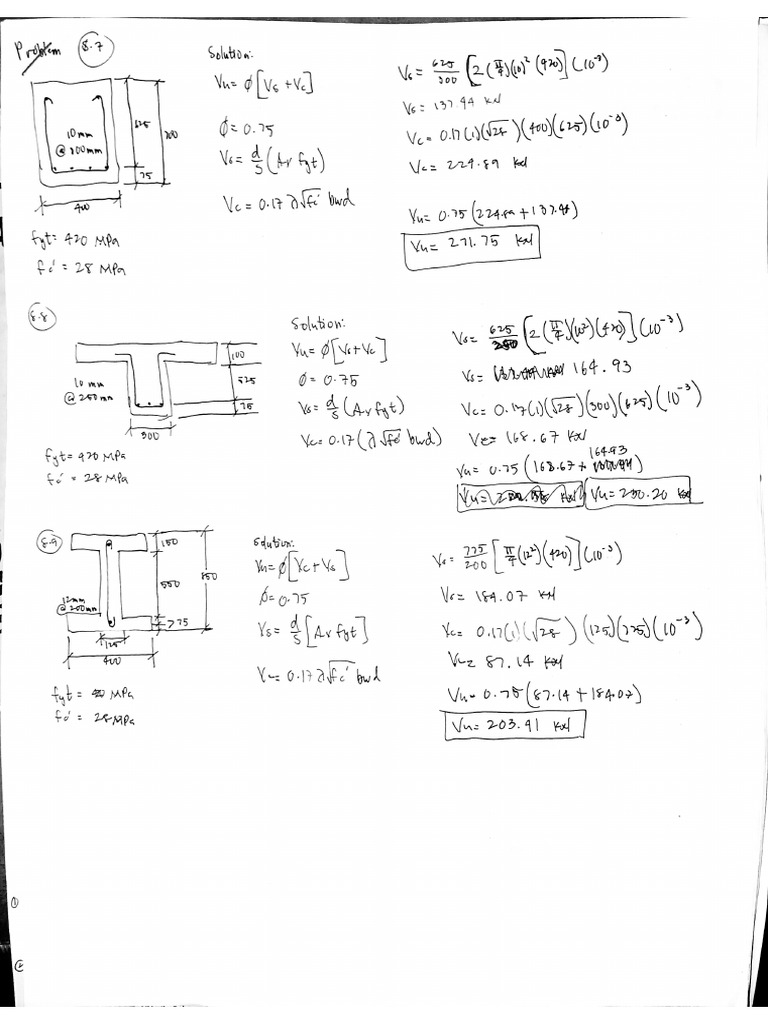 Problem 8.7
Solution:
Vu = ϕ[Vs + Vc]
ϕ = 0.75
Vs = d/s (Av fyt)
Vc = 0.17 λ √fc' bwd
10mm
@ 300mm
625
700
75
400
fyt = 420 MPa
fc' = 28 MPa
Vs = 625/300 [2(π/4)(10)² (420)](10⁻³)
Vs = 137.44 kN
Vc = 0.17(1)(√28)(400)(625)(10⁻³)
Vc = 224.89 kN
Vu = 0.75(224.89 + 137.44)
Vu = 271.75 kN
8.8
100
525
75
10 mm
@ 250mm
300
fyt = 420 MPa
fc' = 28 MPa
Solution:
Vu = ϕ[Vs + Vc]
ϕ = 0.75
Vs = d/s (Av fyt)
Vc = 0.17(λ √fc' bwd)
Vs = 625/250 [2(π/4)(10²)(420)](10⁻³)
Vs = 164.93
Vc = 0.17(1)(√28)(300)(625)(10⁻³)
Vc = 168.67 kN
Vu = 0.75(168.67 + 164.93)
Vu = 250.20 kN
8.9
150
550
850
75
12mm
@ 200mm
125
400
fyt = 420 MPa
fc' = 28 MPa
Solution:
Vu = ϕ[Vc + Vs]
ϕ = 0.75
Vs = d/s [Av fyt]
Vc = 0.17 λ √fc' bwd
Vs = 775/200 [π/4 (12²)(420)](10⁻³)
Vs = 184.07 kN
Vc = 0.17(1)(√28)(125)(775)(10⁻³)
Vc = 87.14 kN
Vu = 0.75(87.14 + 184.07)
Vu = 203.41 kN